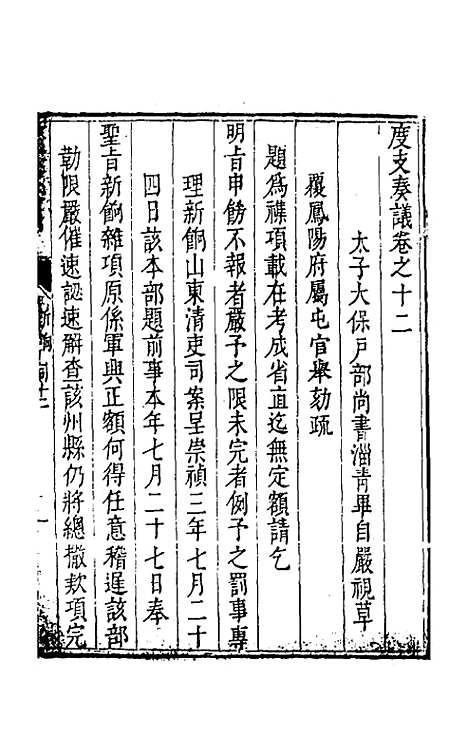 度支奏議卷之十二
太子太保戸部尚書淄青畢自嚴視草
覆鳳陽府屬屯官舉劾疏
題爲襍項載在考成省直迄無定額請乞
明旨申飭不報者嚴予之限未完者例予之罰事專
理新餉山東清吏司案呈崇禎三年七月二十
四日該本部題前事本年七月二十七日奉
聖旨新餉雜項原係軍興正額何得任意稽遲該部
勒限嚴催速認速解查該州縣仍將總撒欵項完